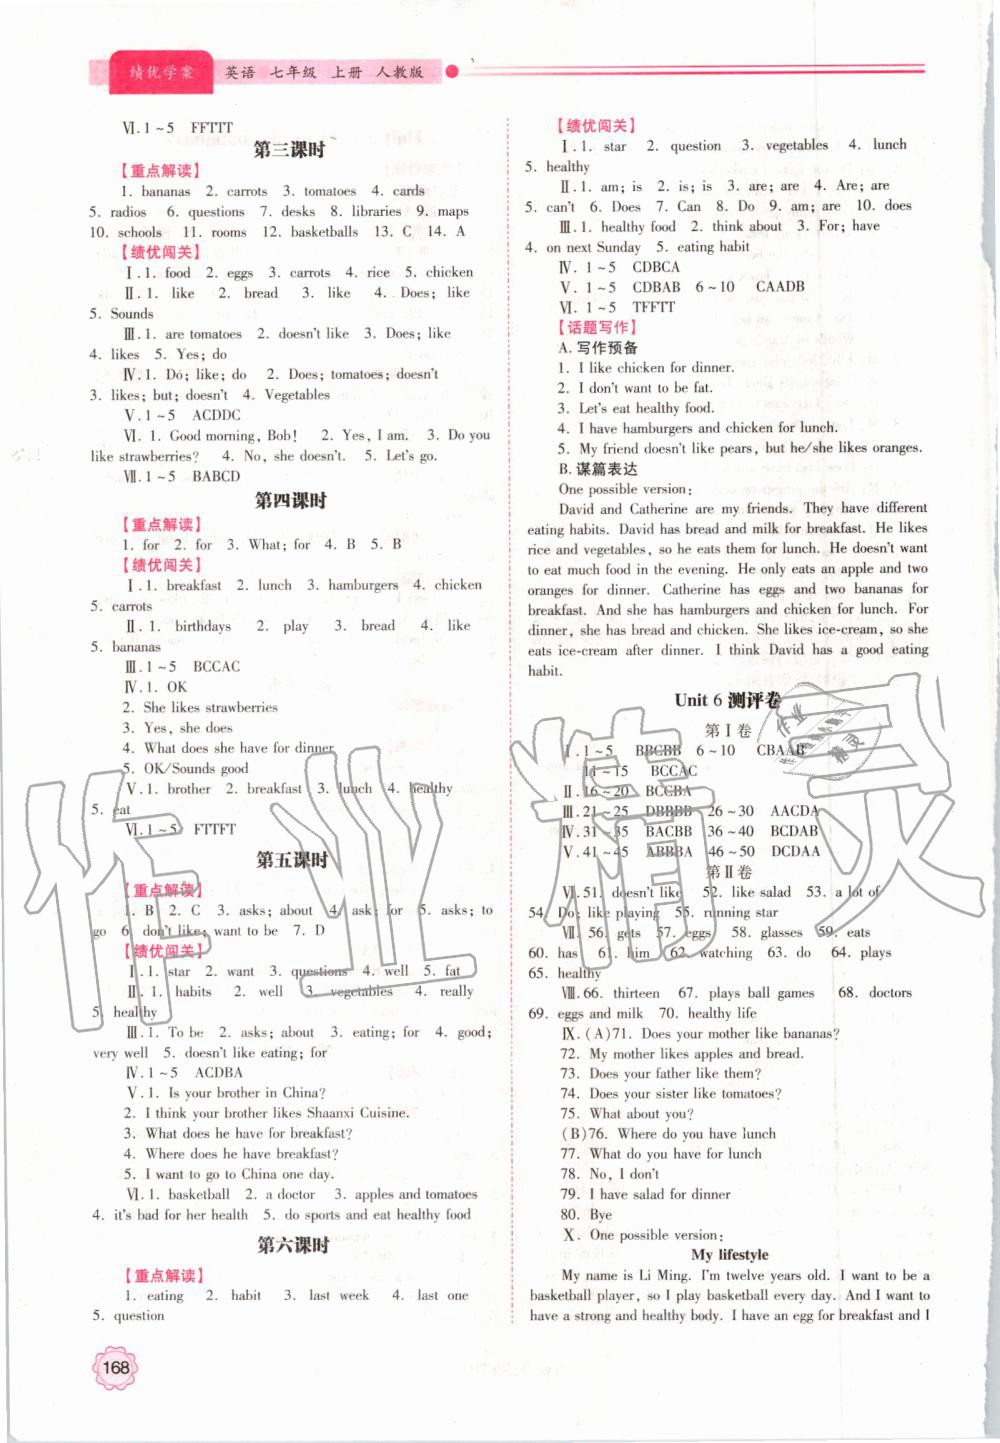 绩优学案 英语 七年级 上册 人教版
Ⅵ. 1~5 FFTTT
第三课时
【重点解读】
1. bananas 2. carrots 3. tomatoes 4. cards
5. radios 6. questions 7. desks 8. libraries 9. maps
10. schools 11. rooms 12. basketballs 13. C 14. A
【绩优闯关】
Ⅰ. 1. food 2. eggs 3. carrots 4. rice 5. chicken
Ⅱ. 1. like 2. bread 3. like 4. Does; like
5. Sounds
Ⅲ. 1. are tomatoes 2. doesn't like 3. Does; like
4. likes 5. Yes; do
Ⅳ. 1. Do; like; do 2. Does; tomatoes; doesn't
3. likes; but; doesn't 4. Vegetables
Ⅴ. 1~5 ACDDC
Ⅵ. 1. Good morning, Bob! 2. Yes, I am. 3. Do you
like strawberries? 4. No, she doesn't. 5. Let's go.
Ⅶ. 1~5 BABCD
第四课时
【重点解读】
1. for 2. for 3. What; for 4. B 5. B
【绩优闯关】
Ⅰ. 1. breakfast 2. lunch 3. hamburgers 4. chicken
5. carrots
Ⅱ. 1. birthdays 2. play 3. bread 4. like
5. bananas
Ⅲ. 1~5 BCCAC
Ⅳ. 1. OK
2. She likes strawberries
3. Yes, she does
4. What does she have for dinner
5. OK/Sounds good
Ⅴ. 1. brother 2. breakfast 3. lunch 4. healthy
5. eat
Ⅵ. 1~5 FTTFT
第五课时
【重点解读】
1. B 2. C 3. asks; about 4. ask; for 5. asks; to
go 6. don't like; want to be 7. D
【绩优闯关】
Ⅰ. 1. star 2. want 3. questions 4. well 5. fat
Ⅱ. 1. habits 2. well 3. vegetables 4. really
5. healthy
Ⅲ. 1. To be 2. asks; about 3. eating; for 4. good;
very well 5. doesn't like eating; for
Ⅳ. 1~5 ACDBA
Ⅴ. 1. Is your brother in China?
2. I think your brother likes Shaanxi Cuisine.
3. What does he have for breakfast?
4. Where does he have breakfast?
5. I want to go to China one day.
Ⅵ. 1. basketball 2. a doctor 3. apples and tomatoes
4. it's bad for her health 5. do sports and eat healthy food
第六课时
【重点解读】
1. eating 2. habit 3. last week 4. last one
5. question
168
【绩优闯关】
Ⅰ. 1. star 2. question 3. vegetables 4. lunch
5. healthy
Ⅱ. 1. am; is 2. is; is 3. are; are 4. Are; are
5. can't 6. Does 7. Can 8. Do 9. am; are 10. does
Ⅲ. 1. healthy food 2. think about 3. For; have
4. on next Sunday 5. eating habit
Ⅳ. 1~5 CDBCA
Ⅴ. 1~5 CDBAB 6~10 CAADB
Ⅵ. 1~5 TFFTT
【话题写作】
A. 写作预备
1. I like chicken for dinner.
2. I don't want to be fat.
3. Let's eat healthy food.
4. I have hamburgers and chicken for lunch.
5. My friend doesn't like pears, but he/she likes oranges.
B. 谋篇表达
One possible version:
David and Catherine are my friends. They have different
eating habits. David has bread and milk for breakfast. He likes
rice and vegetables, so he eats them for lunch. He doesn't want
to eat much food in the evening. He only eats an apple and two
oranges for dinner. Catherine has eggs and two bananas for
breakfast. And she has hamburgers and chicken for lunch. For
dinner, she has bread and chicken. She likes ice-cream, so she
eats ice-cream after dinner. I think David has a good eating
habit.
Unit 6 测评卷
第Ⅰ卷
Ⅰ. 1~5 BBCBB 6~10 CBAAB
11~15 BCCAC
Ⅱ. 16~20 BCCBA
Ⅲ. 21~25 DBBBB 26~30 AACDA
Ⅳ. 31~35 BACBB 36~40 BCDAB
Ⅴ. 41~45 ABBBA 46~50 DCDAA
第Ⅱ卷
Ⅵ. 51. doesn't like 52. like salad 53. a lot of
54. Do; like playing 55. running star
Ⅶ. 56. gets 57. eggs 58. glasses 59. eats
60. has 61. him 62. watching 63. do 64. plays
65. healthy
Ⅷ. 66. thirteen 67. plays ball games 68. doctors
69. eggs and milk 70. healthy life
Ⅸ. (A)71. Does your mother like bananas?
72. My mother likes apples and bread.
73. Does your father like them?
74. Does your sister like tomatoes?
75. What about you?
(B)76. Where do you have lunch
77. What do you have for lunch
78. No, I don't
79. I have salad for dinner
80. Bye
Ⅹ. One possible version:
My lifestyle
My name is Li Ming. I'm twelve years old. I want to be a
basketball player, so I play basketball every day. And I want to
have a strong and healthy body. I have an egg for breakfast and I
作业精灵